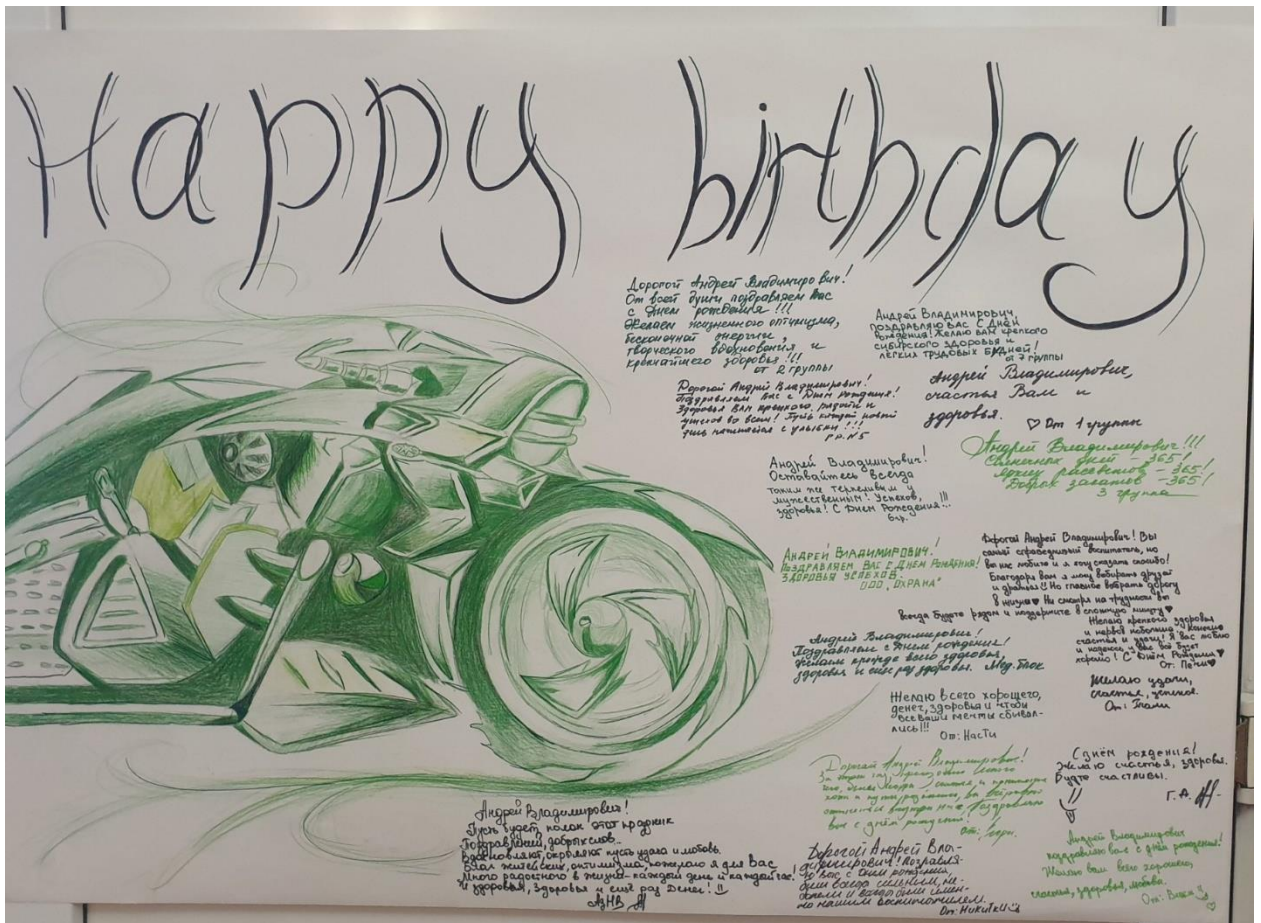 Happy birthday
Дорогой Андрей Владимирович!
От всей души поздравляем Вас
с Днем рождения !!!
Желаем жизненного оптимизма,
бесконечной энергии,
творческого вдохновения и
крепчайшего здоровья !!!
от 2 группы
Андрей Владимирович,
поздравляю вас с Днём
рождения! Желаю вам крепкого
сибирского здоровья и
лёгких трудовых будней!
от 7 группы
Дорогой Андрей Владимирович!
Поздравляем Вас с Днем рождения!
Здоровья Вам крепкого, радости и
успехов во всем! Пусть каждый новый
день начинается с улыбки !!!
гр. №5
Андрей Владимирович,
счастья Вам и
здоровья.
♡ От 1 группы
Андрей Владимирович!!!
Солнечных дней – 365!
Ярких рассветов – 365!
Добрых закатов – 365!
3 группа
Андрей Владимирович!
Оставайтесь всегда
таким же терпеливым и
мужественным! Успехов,
здоровья! С Днем Рождения!!!
6гр.
Андрей Владимирович!
Поздравляем Вас с Днем Рождения!
Здоровья успехов.
ООО "Охрана"
Дорогой Андрей Владимирович! Вы
самый справедливый воспитатель, но
вы нас любите и я хочу сказать спасибо!
Благодаря вам я могу выбирать друзей
и драться! Но главное выбрать дорогу
в жизни♥ Не смотря на трудности вы
всегда будете рядом и поддержите в сложную минуту♥
Желаю крепкого здоровья
и нервов побольше, конечно
счастья и удачи! Я вас люблю
и надеюсь у вас всё будет
хорошо! С Днём Рождения♥
От: Пети♥
Андрей Владимирович!
Поздравляем с Днем рождения!
Желаем прежде всего здоровья,
здоровья и ещё раз здоровья. Мед. блок
Желаю удачи,
счастья, успехов.
От:
Желаю всего хорошего,
денег, здоровья и чтобы
все ваши мечты сбывал-
лись!!!
От: Насти
С днём рождения!
Желаю счастья, здоровья.
Будте счастливы.
Г. А.
Дорогой Андрей Владимирович!
вас с днём рождения!
От:
Андрей Владимирович!
Пусть будет полон этот праздник
Поздравлений, добрых слов.
Вдохновляют, окрыляют пусть удача и любовь.
Благ житейских, оптимизма, пожелаю я для Вас
Много радостного в жизни – каждый день и каждый час!
И здоровья, здоровья и ещё раз Денег!
Дорогой Андрей Вла-
димирович! Поздравля-
ю Вас с Днем рождения,
будьте всегда сильным,
и всегда были имен-
но нашим воспитателем.
От: Никитки
Андрей Владимирович
поздравляю вас с днём рождения!
Желаю вам всего хорошего,
счастья, здоровья, любви.
От: Вики ♡